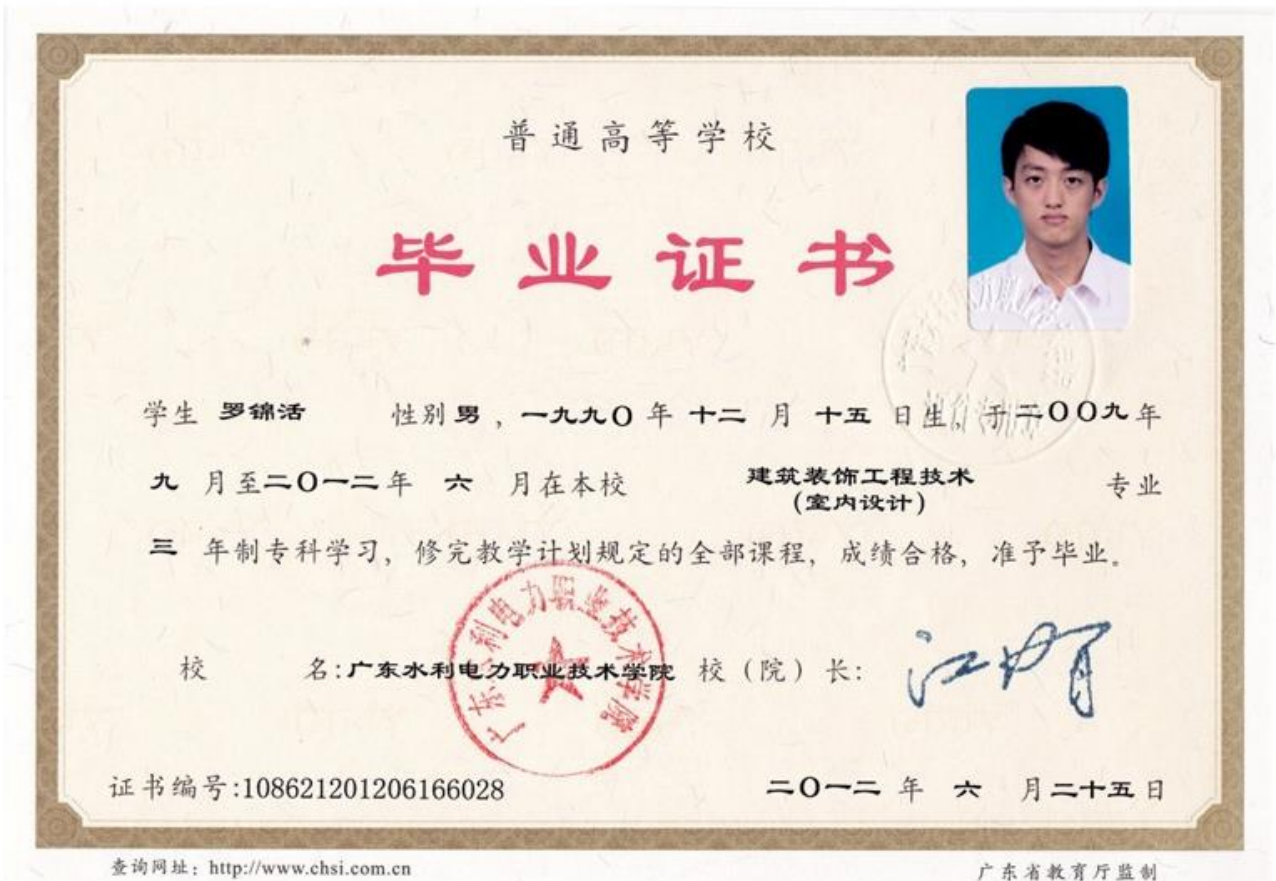 普通高等学校
毕业证书
学生 罗锦活 性别 男 ，一九九〇 年 十二 月 十五 日生，于二〇〇九 年
九 月至二〇一二年 六 月在本校 建筑装饰工程技术 专业
(室内设计)
三 年制专科学习，修完教学计划规定的全部课程，成绩合格，准予毕业。
广东水利电力职业技术学院
校 名:广东水利电力职业技术学院 校（院）长:
证书编号:108621201206166028 二〇一二 年 六 月二十五日
查询网址：http://www.chsi.com.cn 广东省教育厅监制